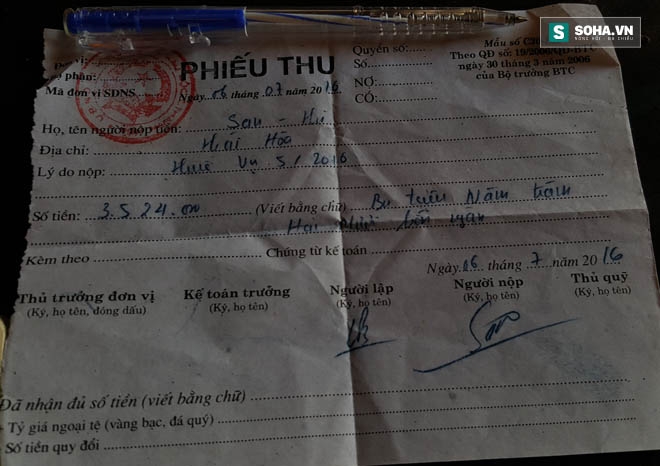 SOHA.VN
Đơn vị:
Bộ phận:
Mã đơn vị SDNS:
PHIẾU THU
Ngày 06 tháng 07 năm 2016
Quyển số:
Số:
NỢ:
CÓ:
Mẫu số C30
Theo QĐ số: 19/2006/QĐ-BTC
ngày 30 tháng 3 năm 2006
của Bộ trưởng BTC
Họ, tên người nộp tiền: San -
Địa chỉ: Hải Hòa
Lý do nộp: vụ 5/2016
Số tiền: 3.524.000 (Viết bằng chữ) Ba triệu Năm trăm
Hai mươi bốn ngàn
Kèm theo Chứng từ kế toán
Ngày 06 tháng 7 năm 2016
Thủ trưởng đơn vị
(Ký, họ tên, đóng dấu)
Kế toán trưởng
(Ký, họ tên)
Người lập
(Ký, họ tên)
Người nộp
(Ký, họ tên)
Thủ quỹ
(Ký, họ tên)
Đã nhận đủ số tiền (viết bằng chữ)
- Tỷ giá ngoại tệ (vàng bạc, đá quý)
- Số tiền quy đổi